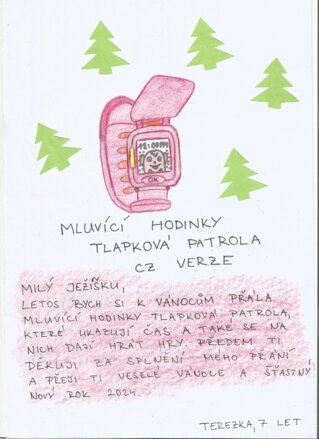 12:00
OK
MLUVÍCÍ HODINKY
TLAPKOVÁ PATROLA
CZ VERZE
MILÝ JEŽÍŠKU,
LETOS BYCH SI K VÁNOCŮM PŘÁLA
MLUVÍCÍ HODINKY TLAPKOVÁ PATROLA,
KTERÉ UKAZUJÍ ČAS A TAKÉ SE NA
NICH DAJÍ HRÁT HRY. PŘEDEM TI
DĚKUJI ZA SPLNĚNÍ MÉHO PŘÁNÍ
A PŘEJI TI VESELÉ VÁNOCE A ŠŤASTNÝ
NOVÝ ROK 2024.
TEREZKA, 7 LET